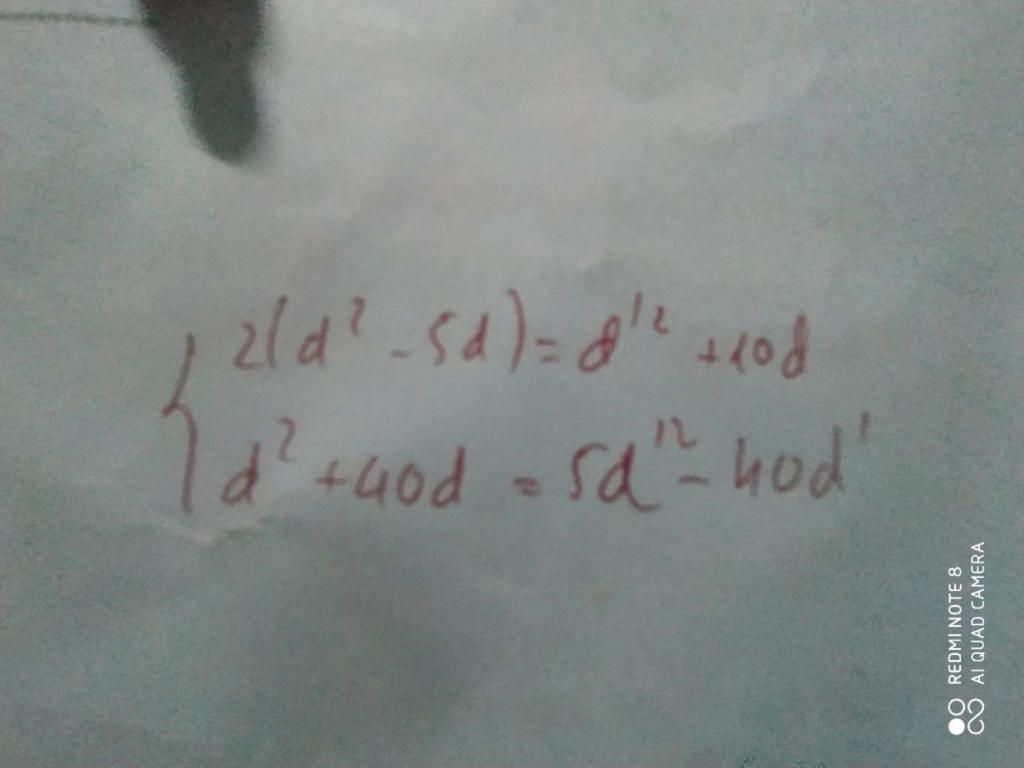 2(d² - 5d) = d'² + 10d
d² + 40d = 5d'² - 40d'
REDMI NOTE 8
AI QUAD CAMERA